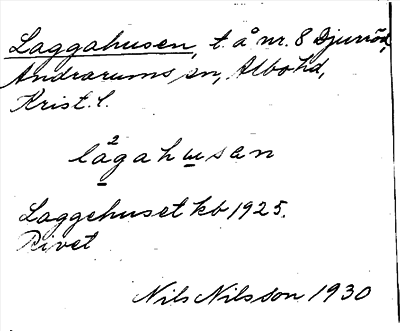 Laggahusen, t. å nr. 8 Djurröd,
Andrarums sn, Albo hd,
Krist. l.
2
lågahusan
Laggehuset kb 1925.
Rivet
Nils Nilsson 1930